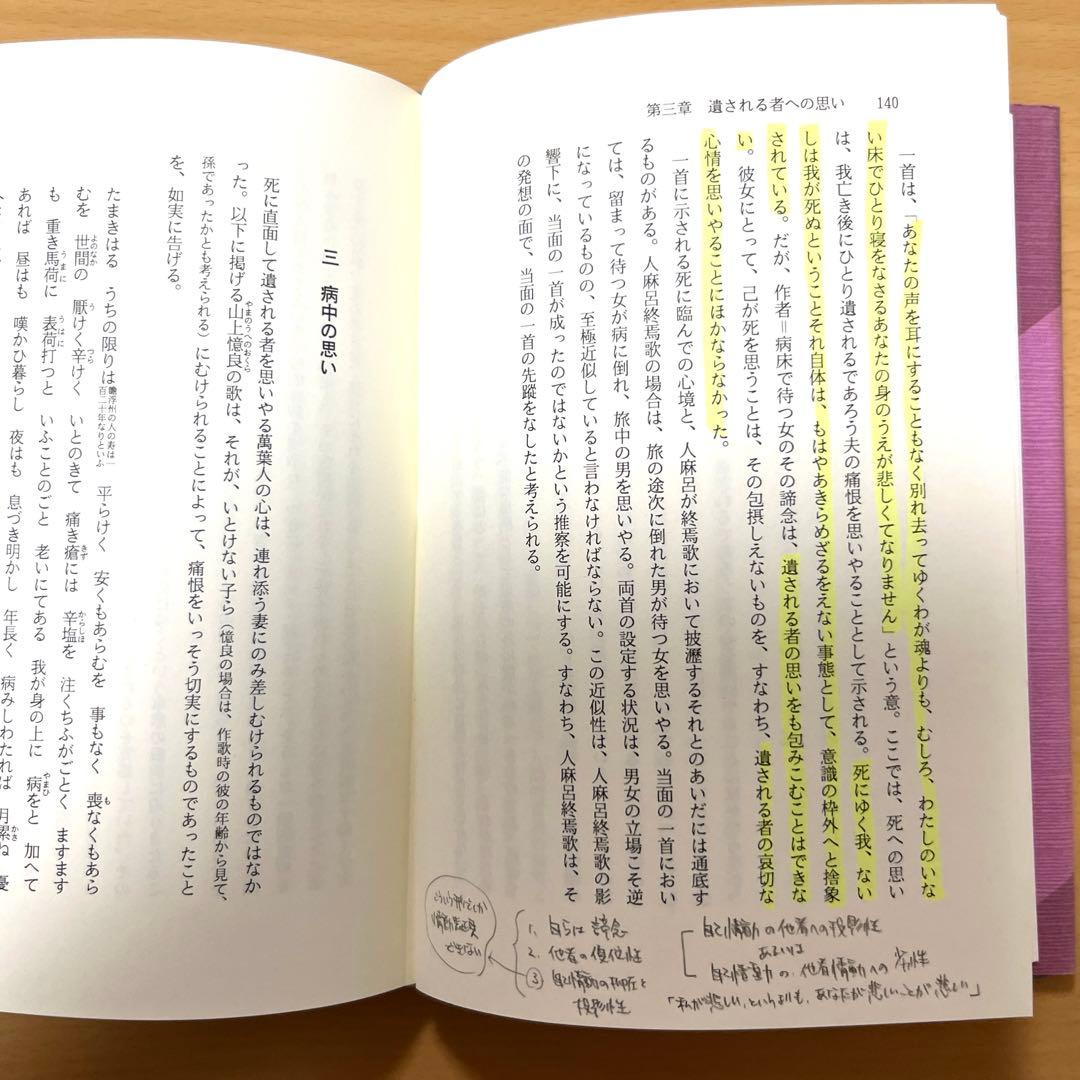 第三章　遺される者への思い　140
一首は、「あなたの声を耳にすることもなく別れ去ってゆくわが魂よりも、むしろ、わたしのいな
い床でひとり寝をなさるあなたの身のうえが悲しくてなりません」という意。ここでは、死への思い
は、我亡き後にひとり遺されるであろう夫の痛恨を思いやることとして示される。死にゆく我、ない
しは我が死ぬということそれ自体は、もはやあきらめざるをえない事態として、意識の枠外へと捨象
されている。だが、作者＝病床で待つ女のその諦念は、遺される者の思いをも包みこむことはできな
い。彼女にとって、己が死を思うことは、その包摂しえないものを、すなわち、遺される者の哀切な
心情を思いやることにほかならなかった。
一首に示される死に臨んでの心境と、人麻呂が終焉歌において披瀝するそれとのあいだには通底す
るものがある。人麻呂終焉歌の場合は、旅の途次に倒れた男が待つ女を思いやる。当面の一首におい
ては、留まって待つ女が病に倒れ、旅中の男を思いやる。両首の設定する状況は、男女の立場こそ逆
になっているものの、至極近似していると言わなければならない。この近似性は、人麻呂終焉歌の影
響下に、当面の一首が成ったのではないかという推察を可能にする。すなわち、人麻呂終焉歌は、そ
の発想の面で、当面の一首の先蹤をなしたと考えられる。
自己情動の他者への投影性
あるいは
自己情動の、他者情動への
「私が悲しい、というよりも、あなたが悲しいことが悲しい」
1. 自らは諦念
2. 他者の優位性
③ 自己情動の抑圧と
投影性
三　病中の思い
死に直面して遺される者を思いやる萬葉人の心は、連れ添う妻にのみ差しむけられるものではなか
った。以下に掲げる山上憶良の歌は、それが、いとけない子ら（憶良の場合は、作歌時の彼の年齢から見て、
孫であったかとも考えられる）にむけられることによって、痛恨をいっそう切実にするものであったこと
を、如実に告げる。
たまきはる　うちの限りは瞻浮州の人の寿は一百二十年なりといふ　平らけく　安くもあらむを　事もなく　喪なくもあら
むを　世間の　厭けく辛けく　いとのきて　痛き瘡には　辛塩を　注くちふがごとく　ますます
も　重き馬荷に　表荷打つと　いふことのごと　老いにてある　我が身の上に　病をと　加へて
あれば　昼はも　嘆かひ暮らし　夜はも　息づき明かし　年長く　病みしわたれば　月累ね　憂